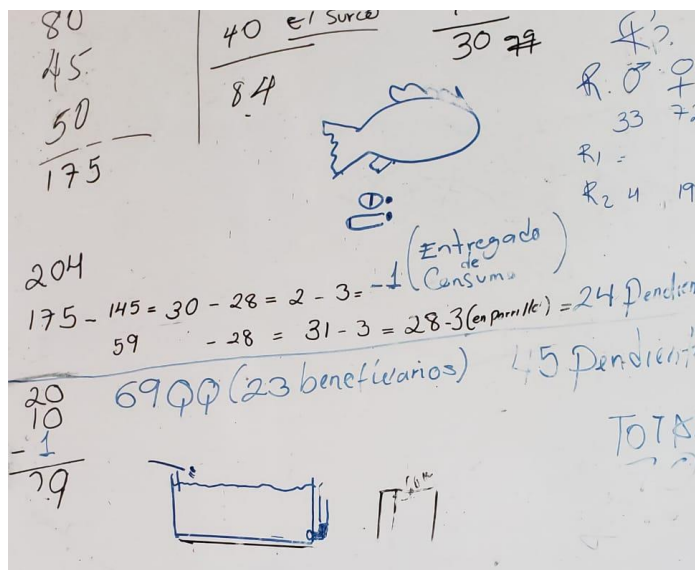 80
45
50
175
40 El Surco
84
30
R. ♂ ♀
33
R1 =
R2 4 19
204
175 - 145 = 30 - 28 = 2 - 3 = -1 (Entregado de Consumo)
59 - 28 = 31 - 3 = 28-3 (en parrilla) = 24 Pendien
69QQ (23 beneficiarios) 45 Pendient
20
10
- 1
29
TOTA